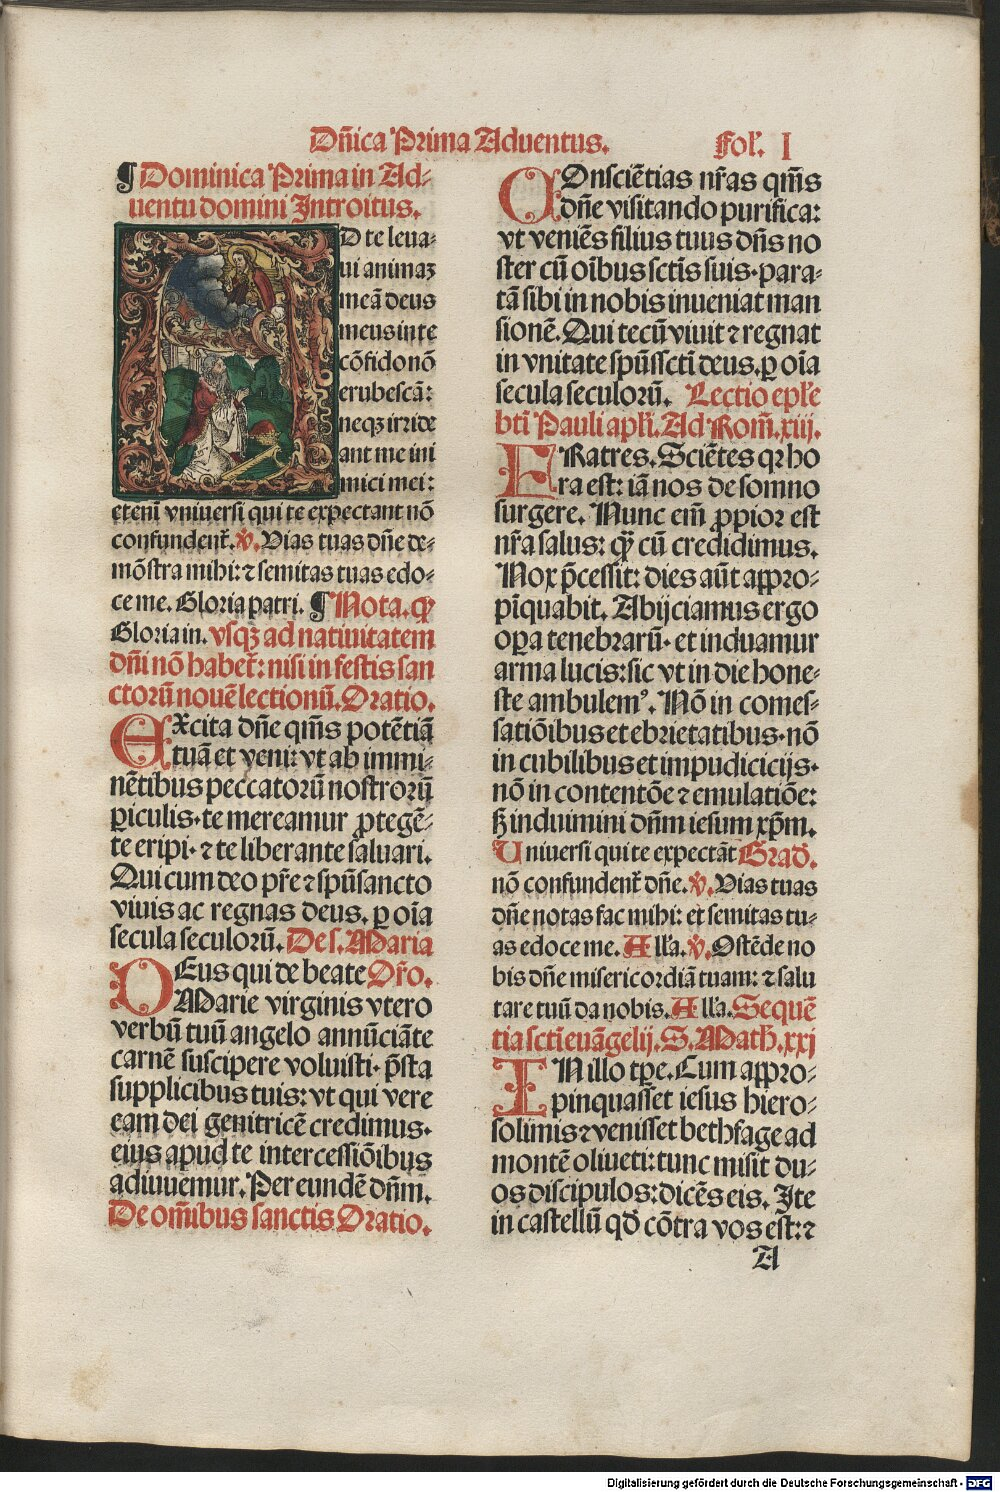 Dn̄ica Prima Aduentus.
Folꝰ. I
¶ Dominica Prima in Ad⸗
uentu domini Introitus.
AD te leua⸗
ui animaꝫ
meā deus
meus in te
cōfido nō
erubescā:
neqꝫ irride
ant me ini
mici mei:
etenī vniuersi qui te expectant nō
confundent̄. ℣. Vias tuas dn̄e de⸗
mōstra mihi: ⁊ semitas tuas edo⸗
ce me. Gloria patri. ¶ Nota. ꝙ
Gloria in. vsqꝫ ad natiuitatem
dn̄i nō habet̄: nisi in festis san
ctorū nouē lectionū. Oratio.
EXcita dn̄e qm̄s potētiā
tuā et veni: vt ab immi⸗
nētibus peccatorū nostrorū
ꝑiculis · te mereamur ꝓtegē⸗
te eripi · ⁊ te liberante saluari.
Qui cum deo pr̄e ⁊ spūsancto
viuis ac regnas deus. ꝑ oīa
secula seculorū. De s. Maria
DEus qui de beate Or̄o.
Marie virginis vtero
verbū tuū angelo annūciāte
carnē suscipere voluisti · p̄sta
supplicibus tuis: vt qui vere
eam dei genitricē credimus ·
eius apud te intercessiōibus
adiuuemur. Per eundē dn̄m.
De om̄ibus sanctis Oratio.
COnsciētias nr̄as qm̄s
dn̄e visitando purifica:
vt veniēs filius tuus dn̄s no
ster cū oībus sctīs suis · para⸗
tā sibi in nobis inueniat man
sionē. Qui tecū viuit ⁊ regnat
in vnitate spūssctī deus. ꝑ oīa
secula seculorū. Lectio epl̄e
btī Pauli apl̄i. Ad Rom̄. xiij.
FRatres. Sciētes qꝛ ho
ra est: iā nos de somno
surgere. Nunc em̄ ꝓpior est
nr̄a salus: ꝙ̄ cū credidimus.
Nox p̄cessit: dies aūt appro⸗
pīquabit. Abijciamus ergo
oꝑa tenebrarū · et induamur
arma lucis: sic vt in die hone⸗
ste ambulemꝰ. Nō in comes⸗
satiōibus et ebrietatibus · nō
in cubilibus et impudicicijs ·
nō in contentōe ⁊ emulatiōe:
sꝫ induimini dn̄m iesum xp̄m.
Uniuersi qui te expectāt Grad̄.
nō confundent̄ dn̄e. ℣. Vias tuas
dn̄e notas fac mihi: et semitas tu⸗
as edoce me. All'a. ℣. Ostēde no
bis dn̄e misericordiā tuam: ⁊ salu
tare tuū da nobis. All'a. Sequē
tia sctī euāgelij. S. Math̄. xxj
IN illo tp̄e. Cum appro⸗
pinquasset iesus hiero⸗
solimis ⁊ venisset bethfage ad
montē oliueti: tunc misit du⸗
os discipulos: dicēs eis. Ite
in castellū qd̄ cōtra vos est: ⁊
A
Digitalisierung gefördert durch die Deutsche Forschungsgemeinschaft - DFG